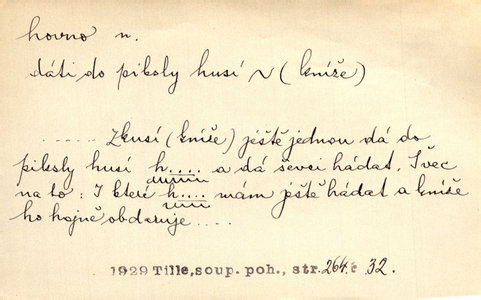 hovno n.
dáti do piksly husí ~ (kníže)
..... Zkusí (kníže) ještě jednou dá do
piksly husí h.... a dá ševci hádat. Švec
na to: I které h.... mám ještě hádat a kníže
ho hojně obdaruje ....
1929 Tille, soup. poh., str. 264. č 32.